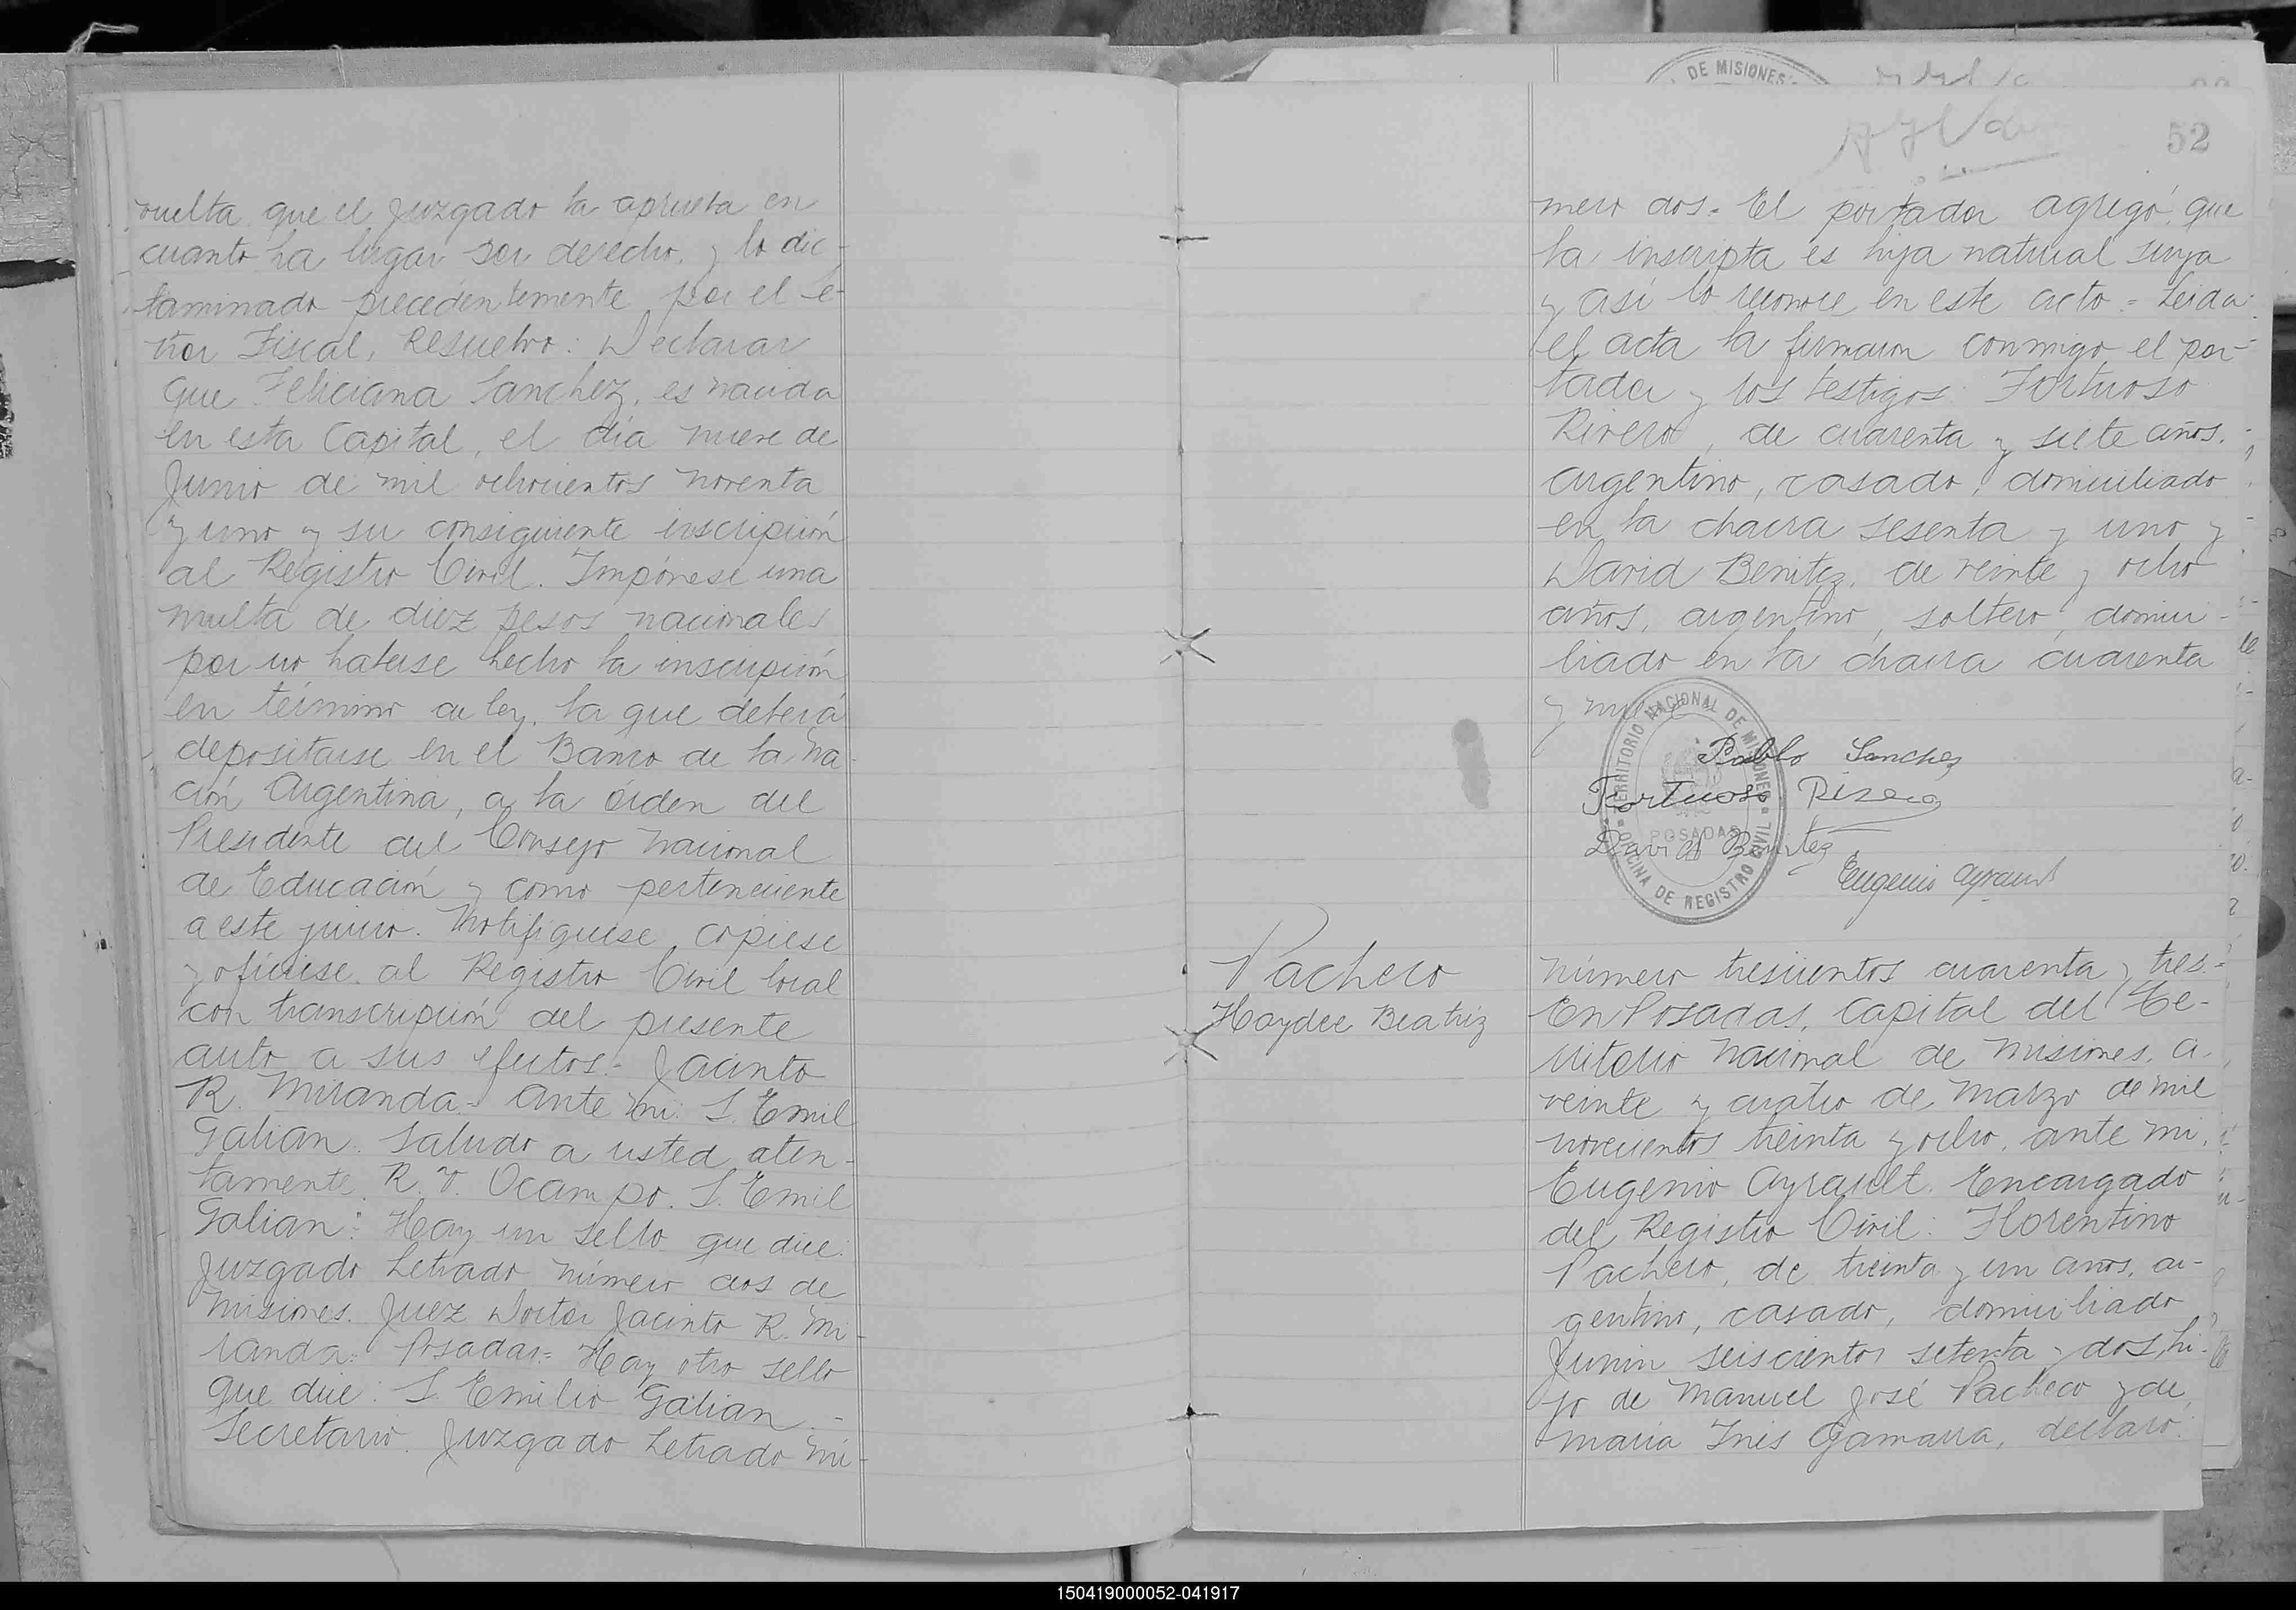 vuelta que el Juzgado la aprueba en
cuanto ha lugar por derecho, y lo dic-
taminado precedentemente por el Se-
ñor Fiscal, Resuelvo: Declarar
que Feliciana Sanchez, es nacida
en esta Capital, el día nueve de
Junio de mil ochocientos noventa
y uno y su consiguiente inscripción
al Registro Civil. Impónese una
multa de diez pesos nacionales
por no haberse hecho la inscripción
en término de ley, la que deberá
depositarse en el Banco de la Na-
ción Argentina, a la órden del
Presidente del Consejo Nacional
de Educación y como perteneciente
a este juicio. Notifíquese, cópiese
y ofíciese al Registro Civil local
con transcripción del presente
auto a sus efectos.- Jacinto
R. Miranda.- Ante mi: S. Emil
Galian. Saludo a usted aten-
tamente. R. V. Ocampo. S. Emil
Galian: Hay un sello que dice:
Juzgado Letrado número dos de
Misiones. Juez Doctor Jacinto R. Mi-
randa= Posadas= Hay otro sello
que dice: S. Emilio Galian.-
Secretario. Juzgado Letrado nú-
DE MISIONES
52
mero dos= El portador agregó: que
la inscripta es hija natural suya
y así lo reconoce en este acto= Leida
el acta la firmaron conmigo el por-
tador y los testigos: Fortuoso
Rivero, de cuarenta y siete años,
argentino, casado, domiciliado
en la chacra sesenta y uno y
David Benitez, de veinte y ocho
años, argentino, soltero, domici-
liado en la chacra cuarenta
y nueve
TERRITORIO NACIONAL DE MISIONES
OFICINA DE REGISTRO CIVIL
POSADAS
Pablo Sanchez
Fortuoso Rivero
David Benitez
Eugenio Ayrault
Pacheco
Haydee Beatriz
Número trescientos cuarenta y tres.=
En Posadas, Capital del Te-
rritorio Nacional de Misiones, a
veinte y cuatro de Marzo de mil
novecientos treinta y ocho, ante mi,
Eugenio Ayrault, Encargado
del Registro Civil: Florentino
Pacheco, de treinta y un años, ar-
gentino, casado, domiciliado
Junin seiscientos setenta y dos, hi-
jo de Manuel José Pacheco y de
María Inés Gamarra, declaró:
150419000052-041917